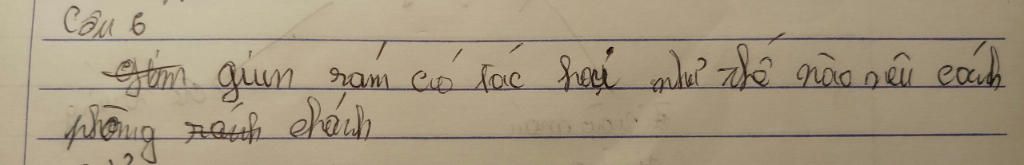 Câu 6
giun rám có tác hại như thế nào nêu cách
phòng chánh